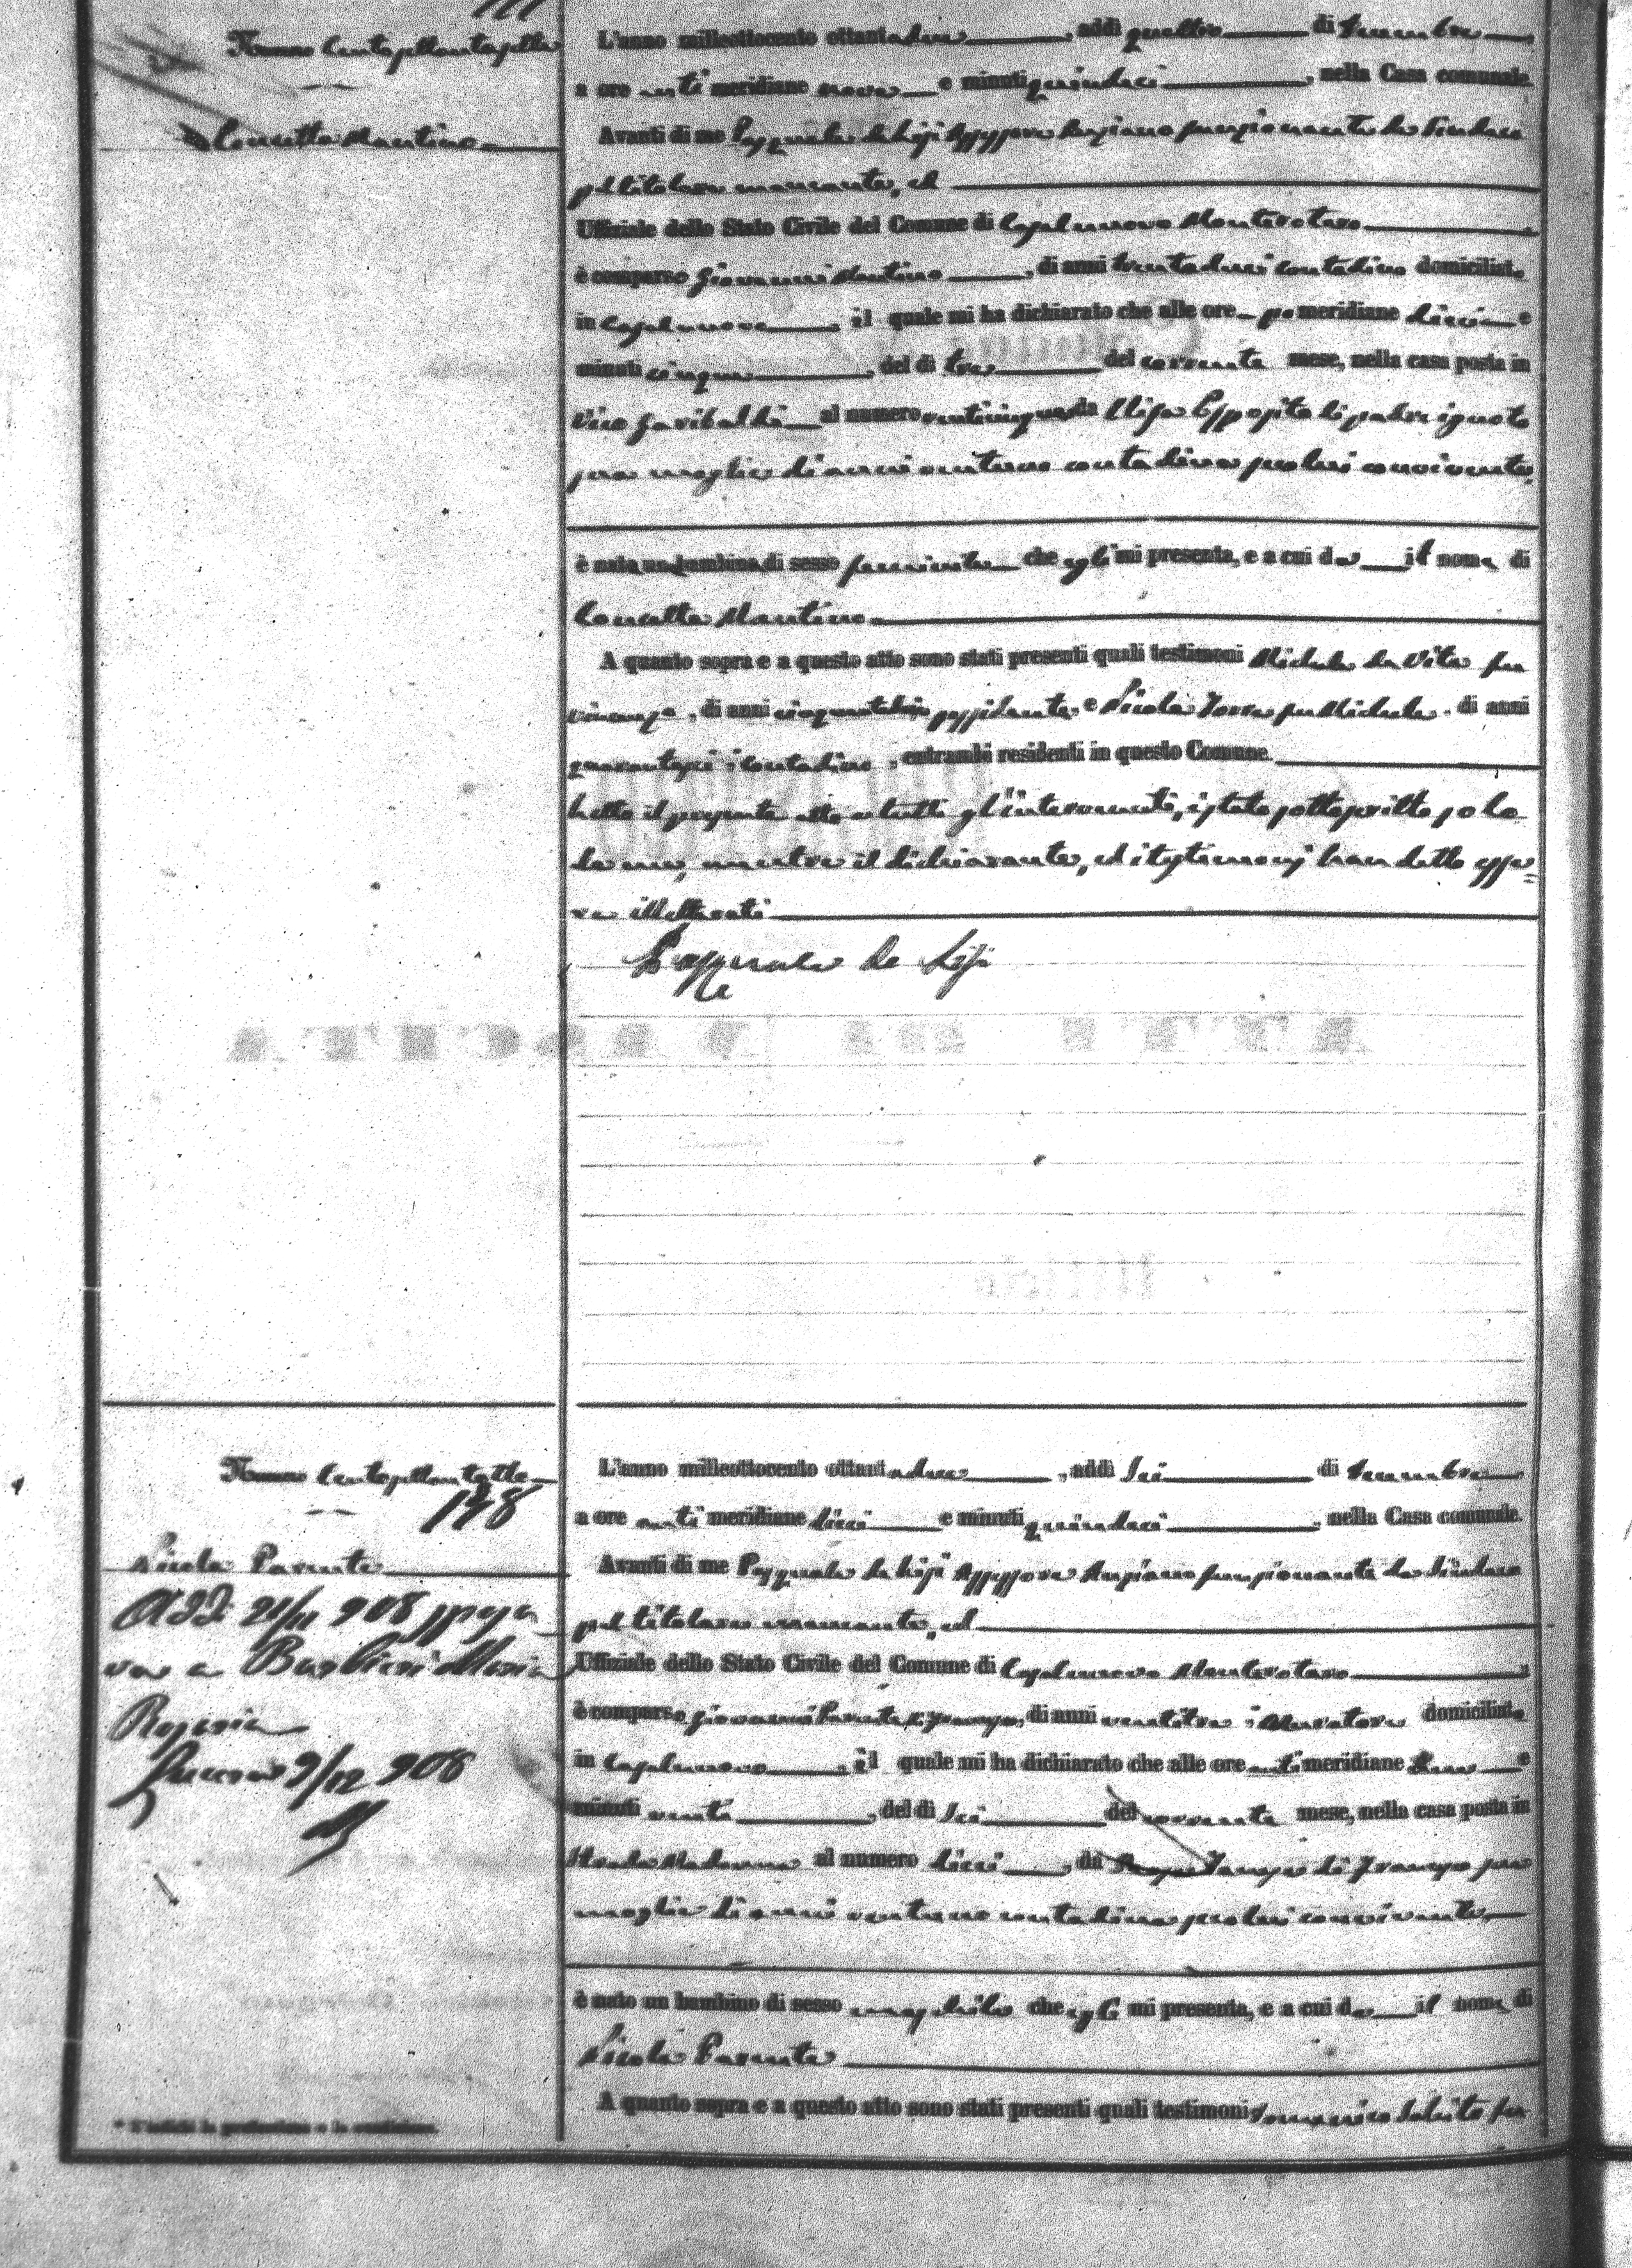 Numero Centosettantasette
Concetta Mantino
L'anno milleottocento ottantadue, addì quattro di Decembre,
a ore anti meridiane nove e minuti quindici, nella Casa comunale.
Avanti di me Pasquale de Lisi Assessore Anziano funzionante da Sindaco
pel titolare mancante, ed
Uffiziale dello Stato Civile del Comune di Casalnuovo Monterotaro
è comparso Giovanni Mantino, di anni trentadue contadino domiciliato
in Casalnuovo, il quale mi ha dichiarato che alle ore pomeridiane dieci e
minuti cinque, del dì tre del corrente mese, nella casa posta in
Vico Garibaldi al numero venticinque da Elisa Esposito di padre ignoto
sua moglie di anni contadina seco lui convivente,
è nata una bambina di sesso femminile che egli mi presenta, e a cui da il nome di
Concetta Mantino
A quanto sopra e a questo atto sono stati presenti quali testimoni Michele de Vita fu
Vincenzo, di anni possidente, e Nicola fu Michele, di anni
quarantasei contadino, entrambi residenti in questo Comune.
Letto il presente atto a tutti gl'intervenuti, è stato sottoscritto solo
da me, mentre il dichiarante, ed i testimonj han detto esse=
re illetterati
Pasquale de Lisi
Numero Centosettantotto
178
Nicola Parente
Addì 21/11 908 sposa
va a Barbieri Maria
Rosaria
Lucera 9/12 908
L'anno milleottocento ottantadue, addì Sei di Decembre
a ore anti meridiane dieci e minuti quindici, nella Casa comunale.
Avanti di me Pasquale de Lisi Assessore Anziano funzionante da Sindaco
pel titolare mancante, ed
Uffiziale dello Stato Civile del Comune di Casalnuovo Monterotaro
è comparso Giovanni Parente di, di anni ventitre, Muratore domiciliato
in Casalnuovo, il quale mi ha dichiarato che alle ore anti meridiane e
minuti venti, del dì Sei del corrente mese, nella casa posta in
Strada Madonna al numero dieci, da di sua
moglie di anni ventuno contadina seco lui convivente
è nato un bambino di sesso maschile che egli mi presenta, e a cui da il nome di
Nicola Parente
A quanto sopra e a questo atto sono stati presenti quali testimoni Domenico fu
* S'indichi la professione o la condizione.